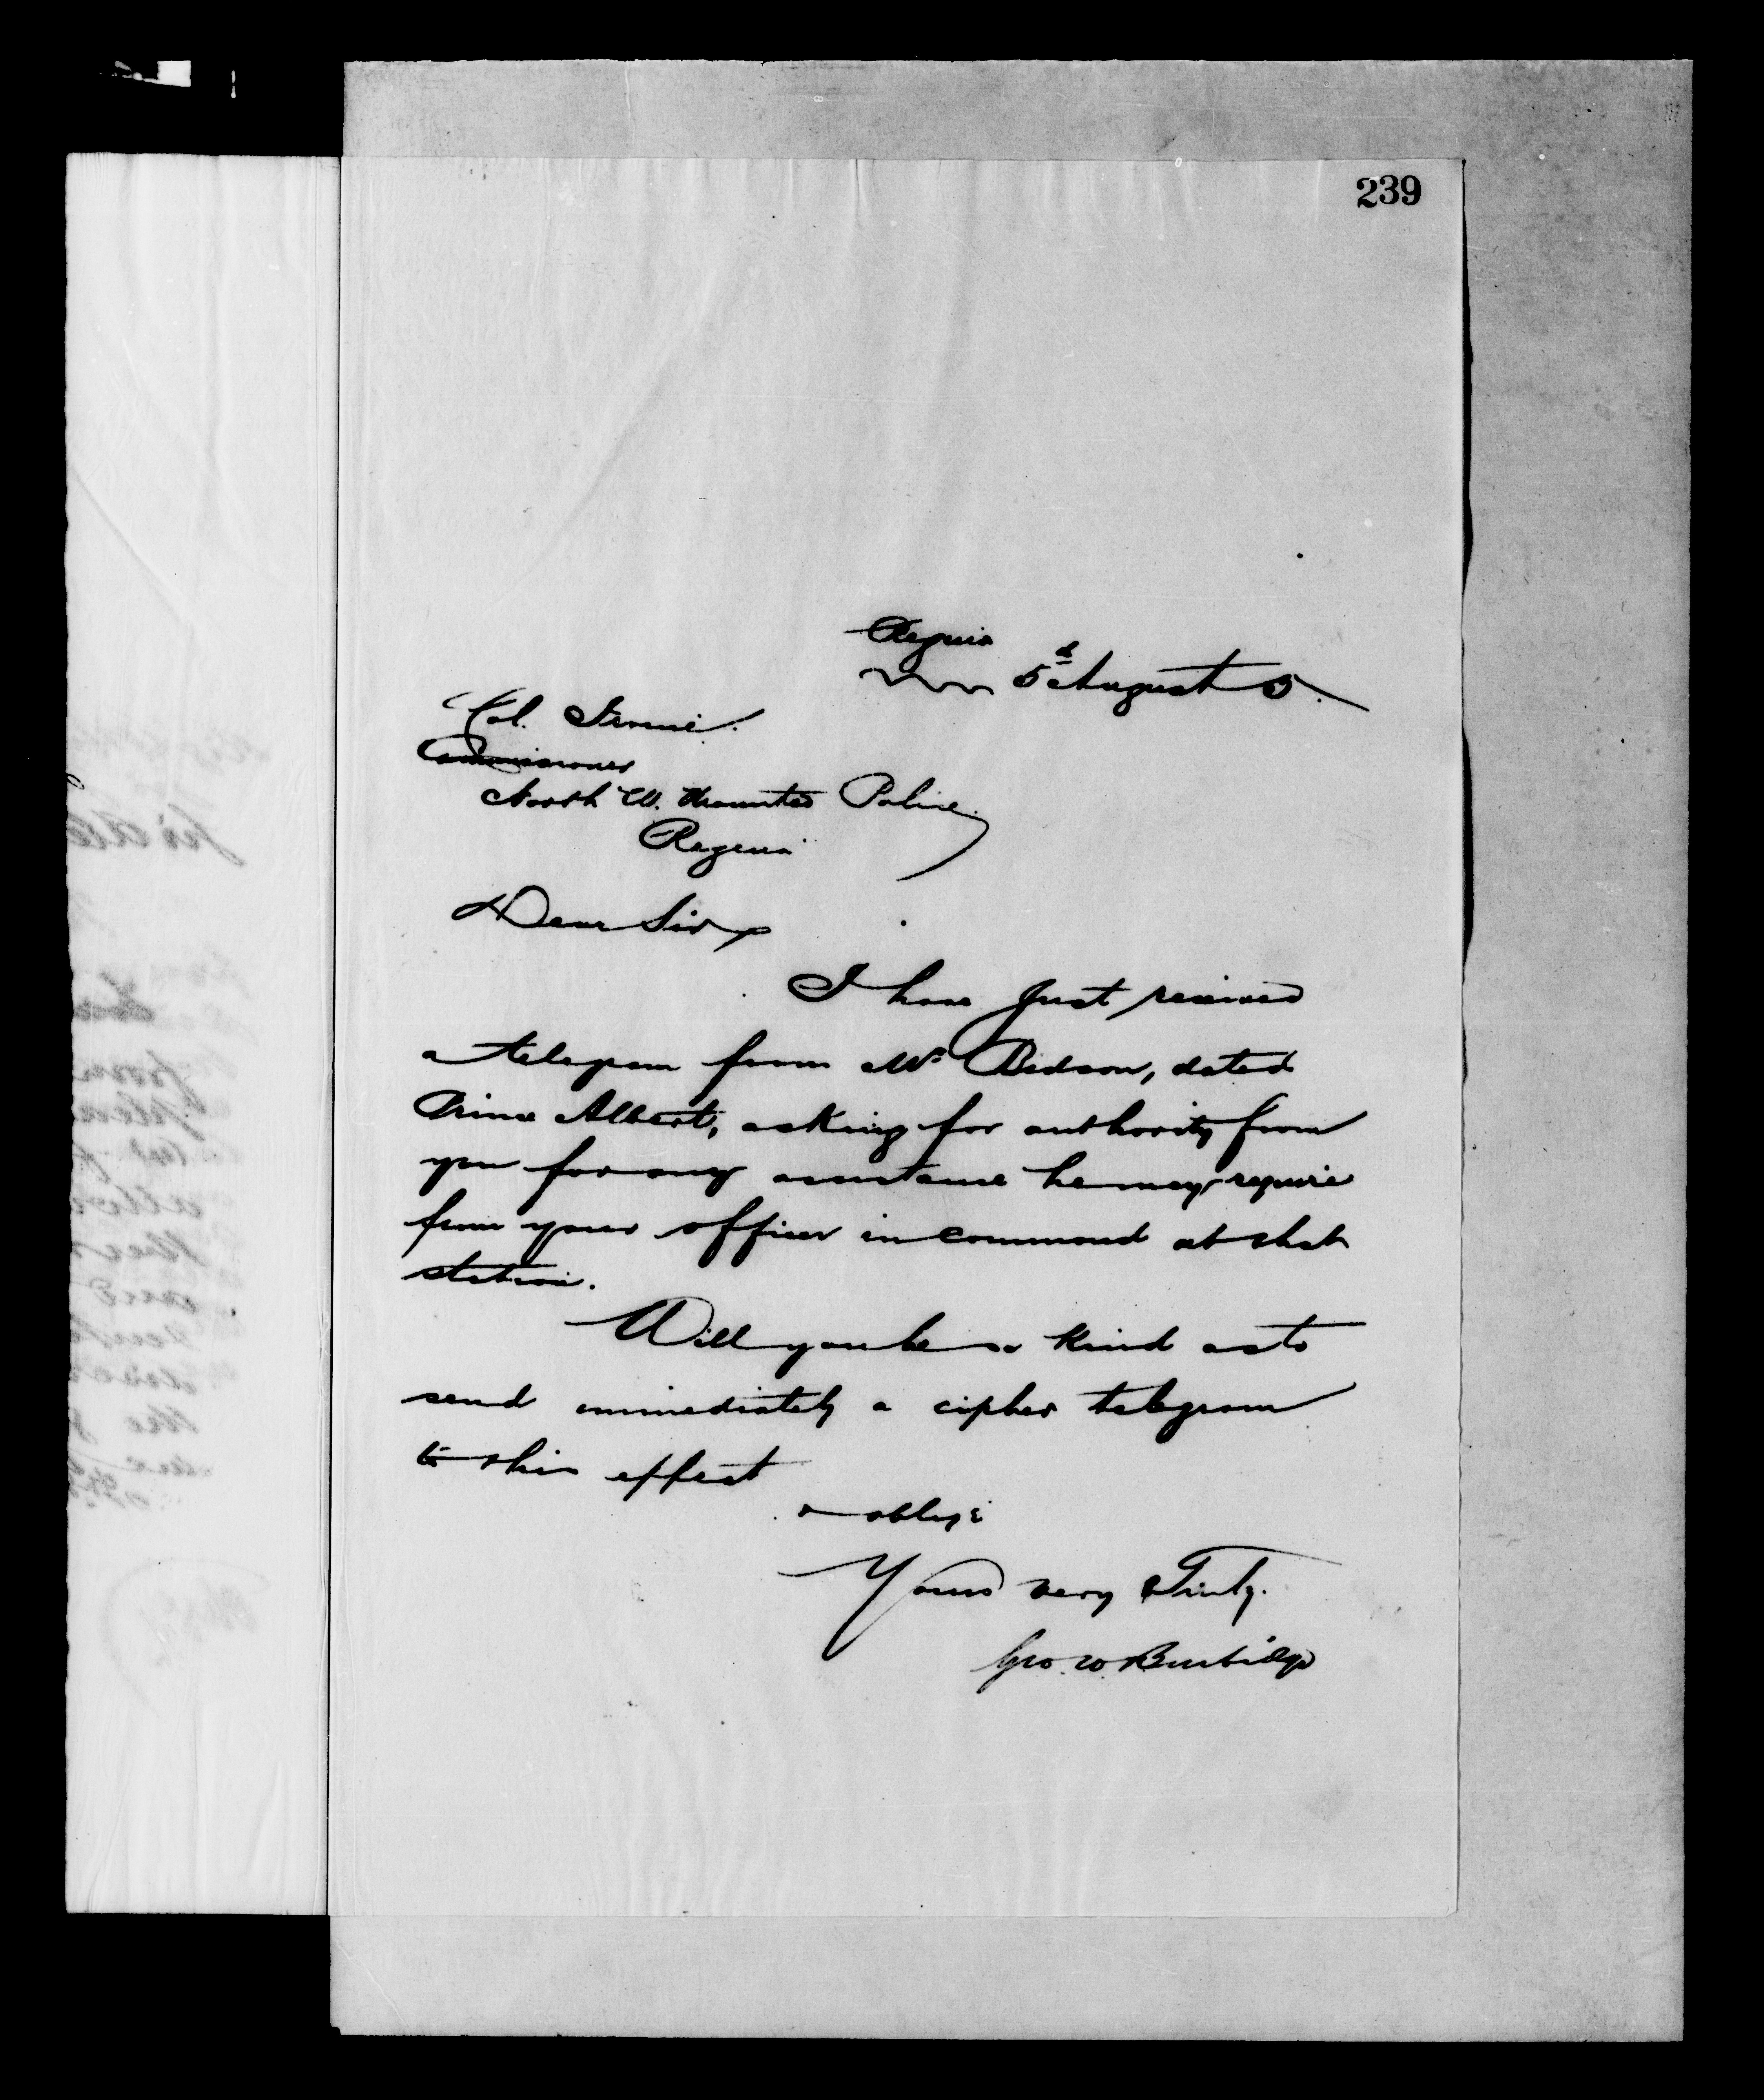 239
Regina
5th August 5.
Col. Irvine.
Commissioner
North W. Mounted Police.
Regina
Dear Sir
I have just received
a telegram from Mr Bedson, dated
Prince Albert, asking for authority from
you for any assistance he may require
from your officer in command at that
station.
Will you be so kind as to
send immediately a cipher telegram
to this effect
& oblige
Yours very Truly.
Geo. W. Burbidge